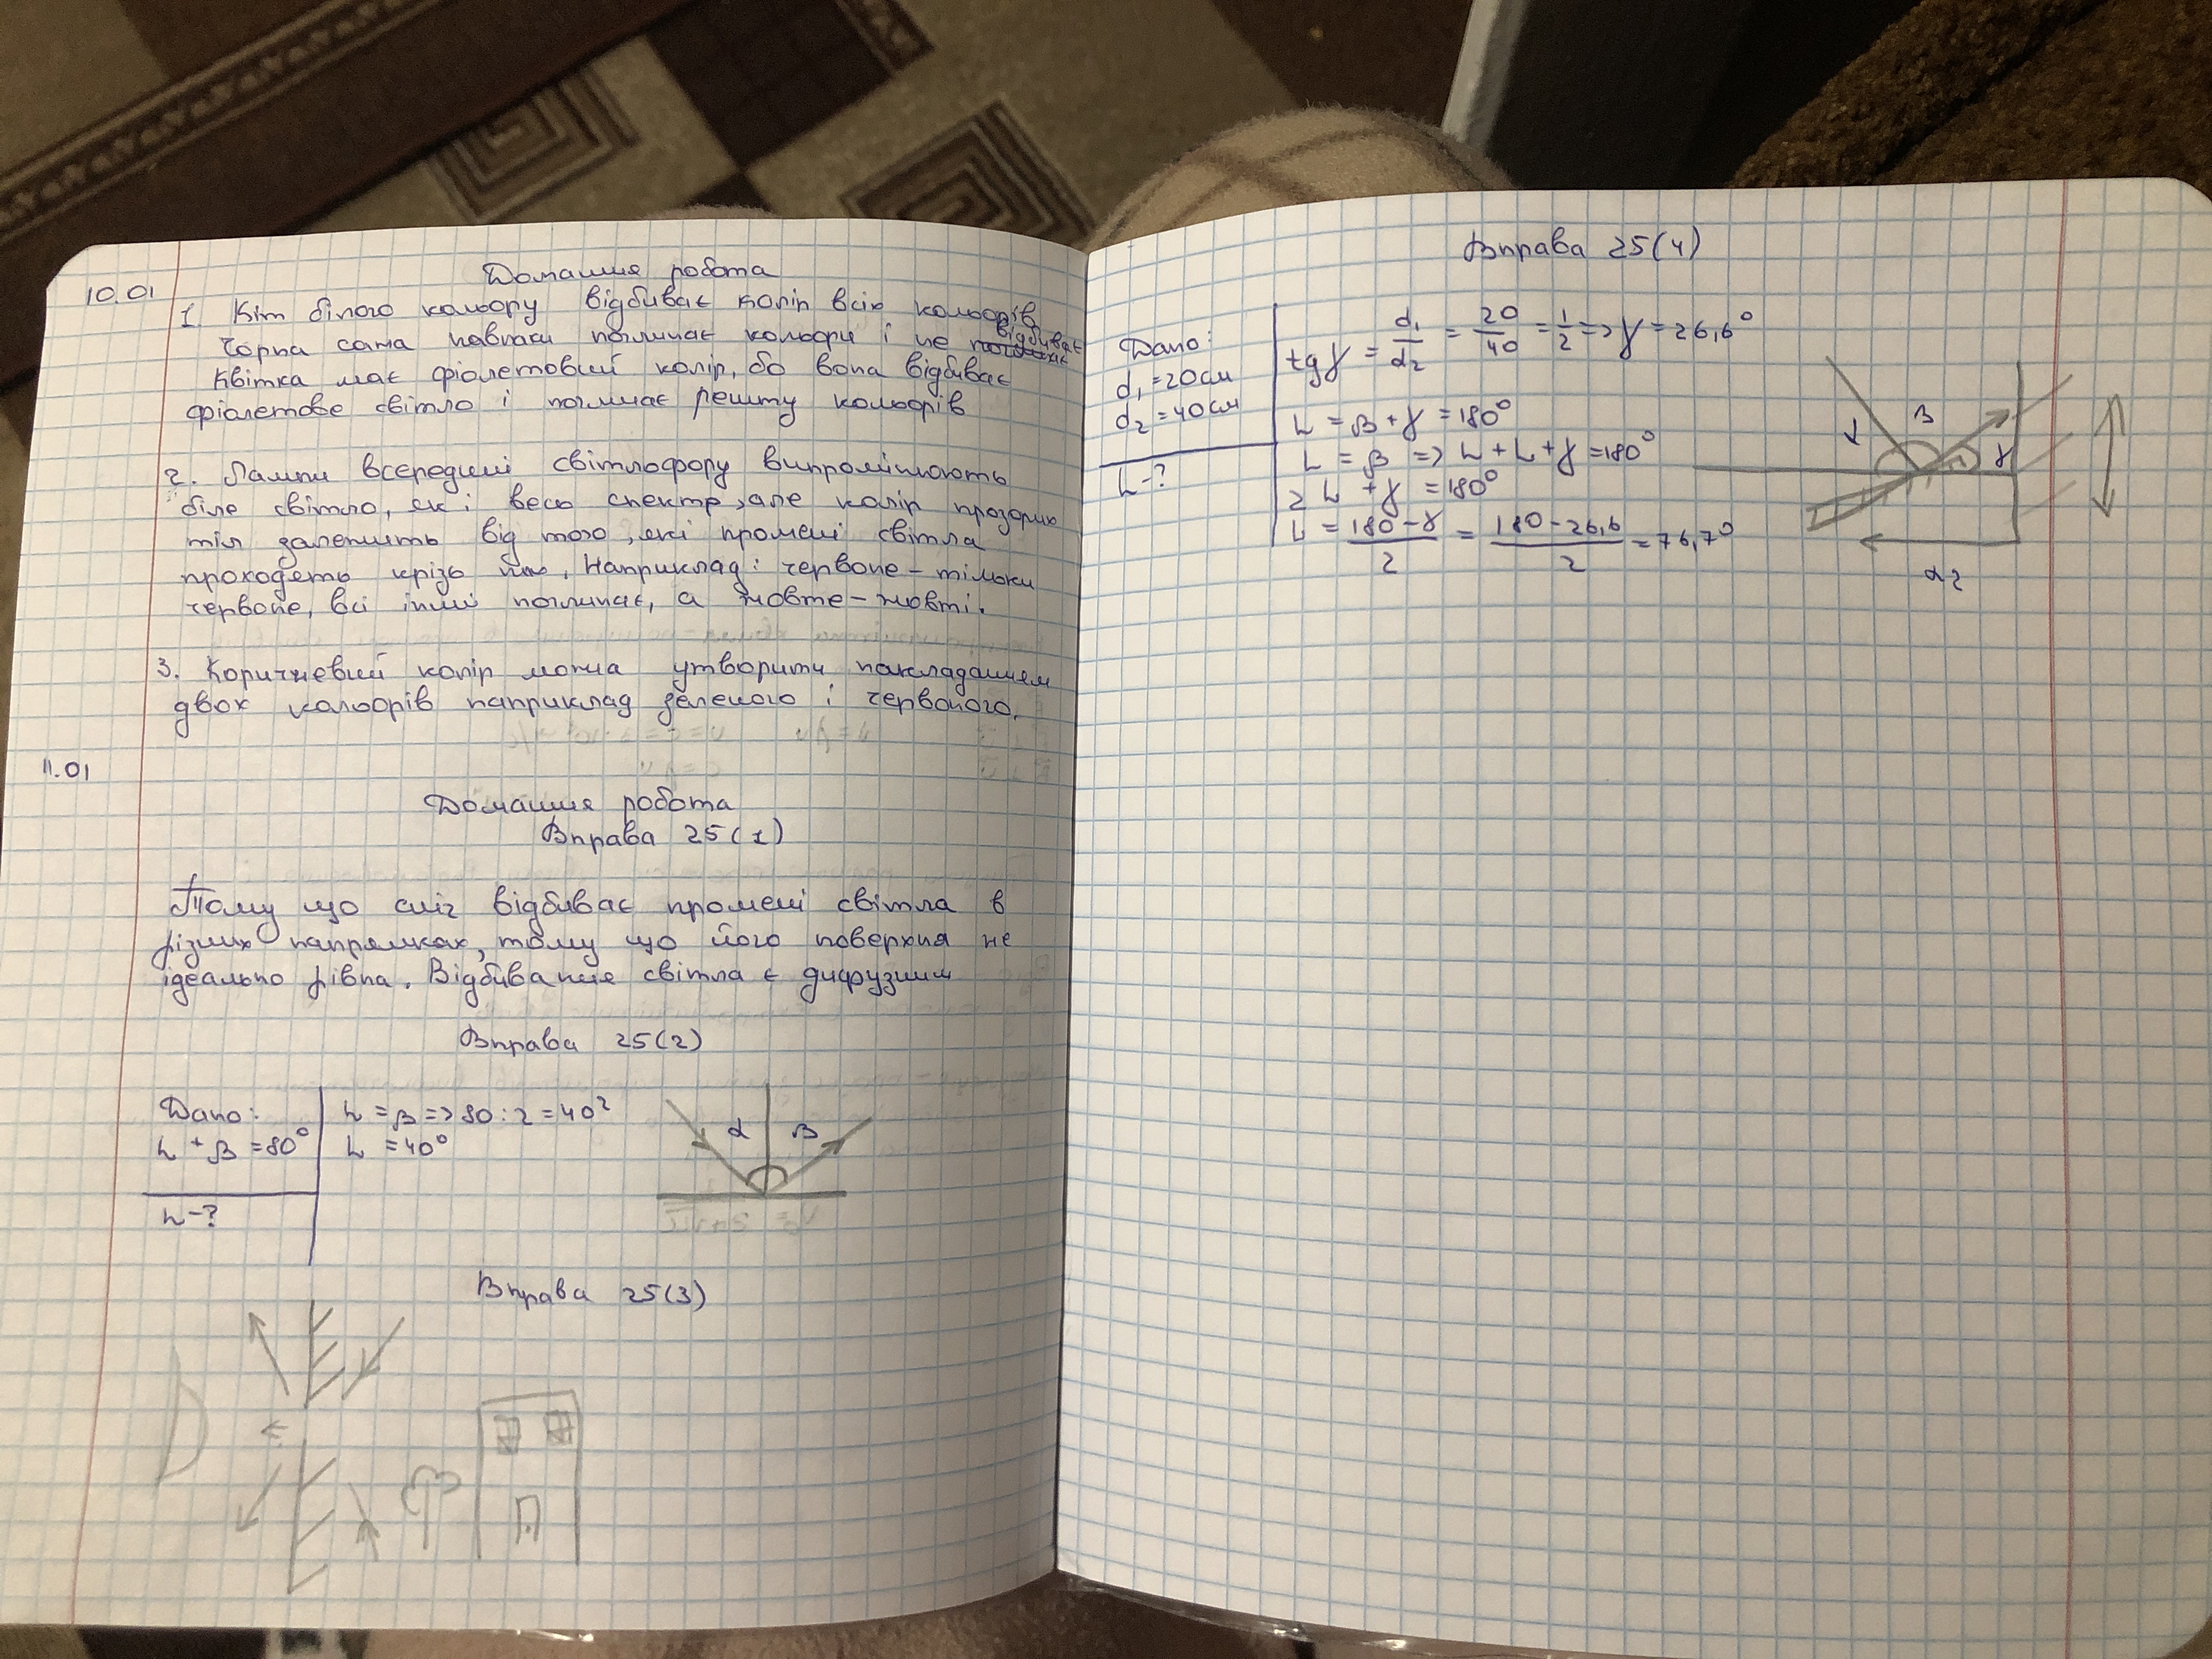 10.01
Домашня робота
1. Кіт білого кольору відбиває колір всіх кольорів
Чорна сама навпаки поглинає кольори і не відбиває
Квітка має фіолетовий колір, бо вона відбиває
фіолетове світло і поглинає решту кольорів
2. Лампи всередині світлофору випромінюють
біле світло, як і весь спектр, але колір прозорих
тіл залежить від того, які промені світла
проходять крізь них. Наприклад: червоне - тільки
червоне, всі інші поглинає, а жовте - жовті.
3. Коричневий колір можна утворити накладанням
двох кольорів наприклад зеленого і червоного.
11.01
Домашня робота
Вправа 25(1)
Тому що сніг відбиває промені світла в
різних напрямках, тому що його поверхня не
ідеально рівна. Відбивання світла є дифузним
Вправа 25(2)
Дано:
α + β = 80°
α - ?
α = β => 80 : 2 = 40°
α = 40°
α β
Вправа 25(3)
Вправа 25(4)
Дано:
d₁ = 20см
d₂ = 40см
α - ?
tg γ = d₁/d₂ = 20/40 = 1/2 => γ = 26,6°
α = β + γ = 180°
α = β => α + α + γ = 180°
2α + γ = 180°
α = (180 - γ)/2 = (180 - 26,6)/2 = 76,7°
α β γ
d₂